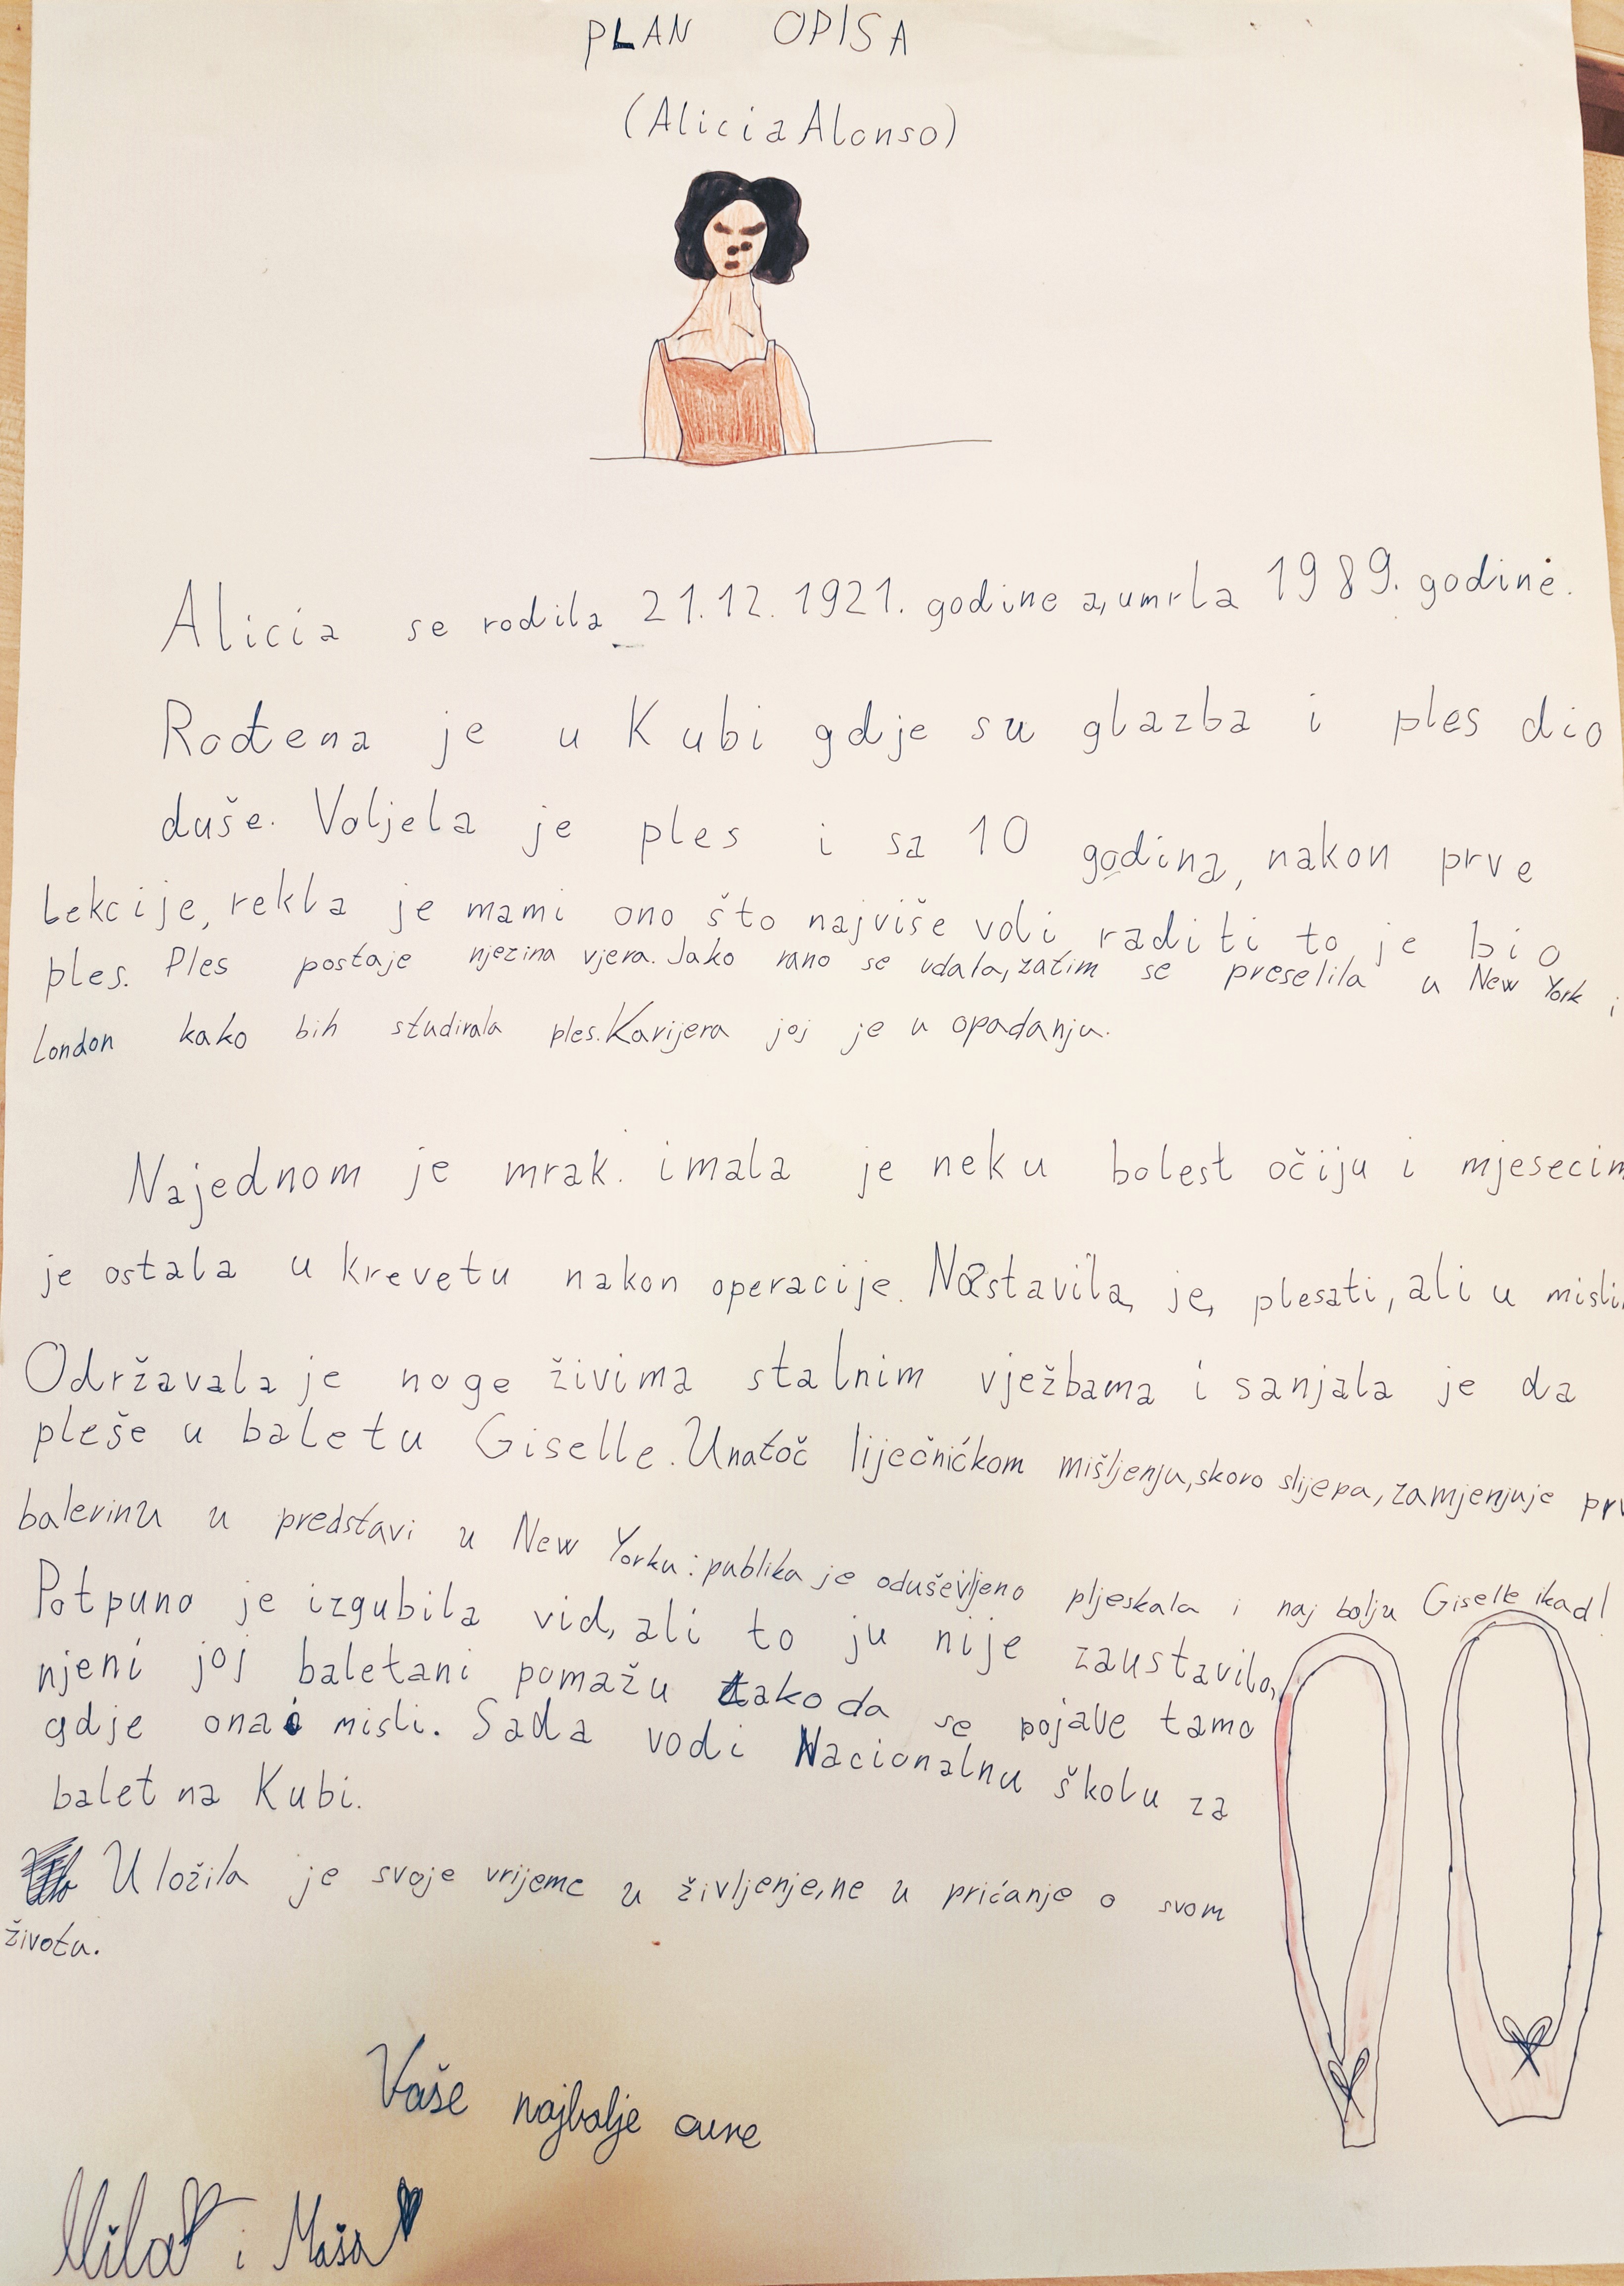 PLAN OPISA
(Alicia Alonso)
Alicia se rodila 21.12.1921. godine a, umrla 1989. godine.
Rođena je u Kubi gdje su glazba i ples dio
duše. Voljela je ples i sa 10 godina, nakon prve
lekcije, rekla je mami ono što najviše voli raditi to je bio
ples. Ples postaje njezina vjera. Jako rano se udala, zatim se preselila u New York i
London kako bih studirala ples. Karijera joj je u opadanju.
Najednom je mrak. imala je neku bolest očiju i mjesecim
je ostala u krevetu nakon operacije. Nastavila je, plesati, ali u misli
Održavala je noge živima stalnim vježbama i sanjala je da
pleše u baletu Giselle. Unatoč liječničkom mišljenju, skoro slijepa, zamjenjuje prv
balerinu u predstavi u New Yorku: publika je oduševljeno pljeskala i naj bolju Giselle ikad!
Potpuno je izgubila vid, ali to ju nije zaustavilo,
njeni joj baletani pomažu tako da se pojave tamo
gdje ona misli. Sada vodi Nacionalnu školu za
balet na Kubi.
Uložila je svoje vrijeme u življenje, ne u prićanje o svom
životu.
Vaše najbolje cure
Mila i Maša